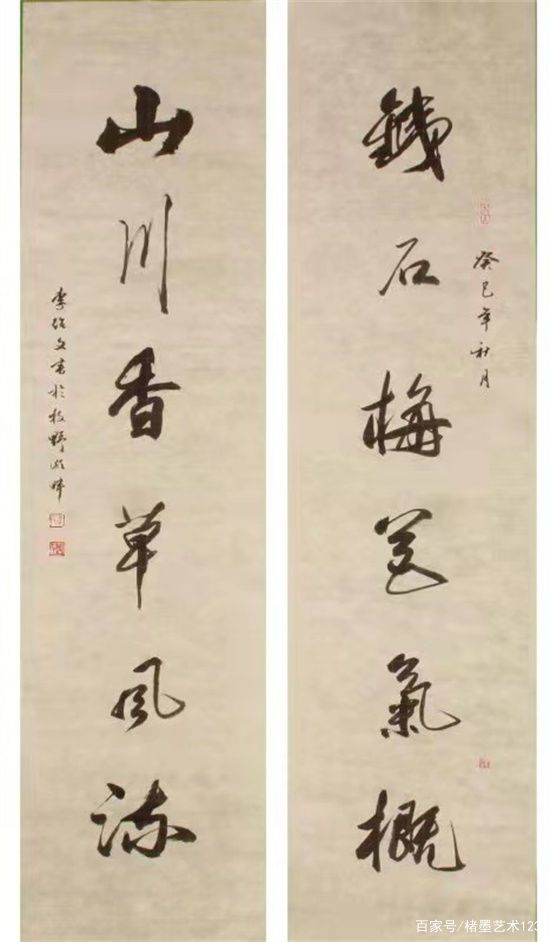 鐵石梅花氣概
癸巳年秋月
山川香草風流
李紹文書於牧野湖畔
百家号/楮墨艺术123